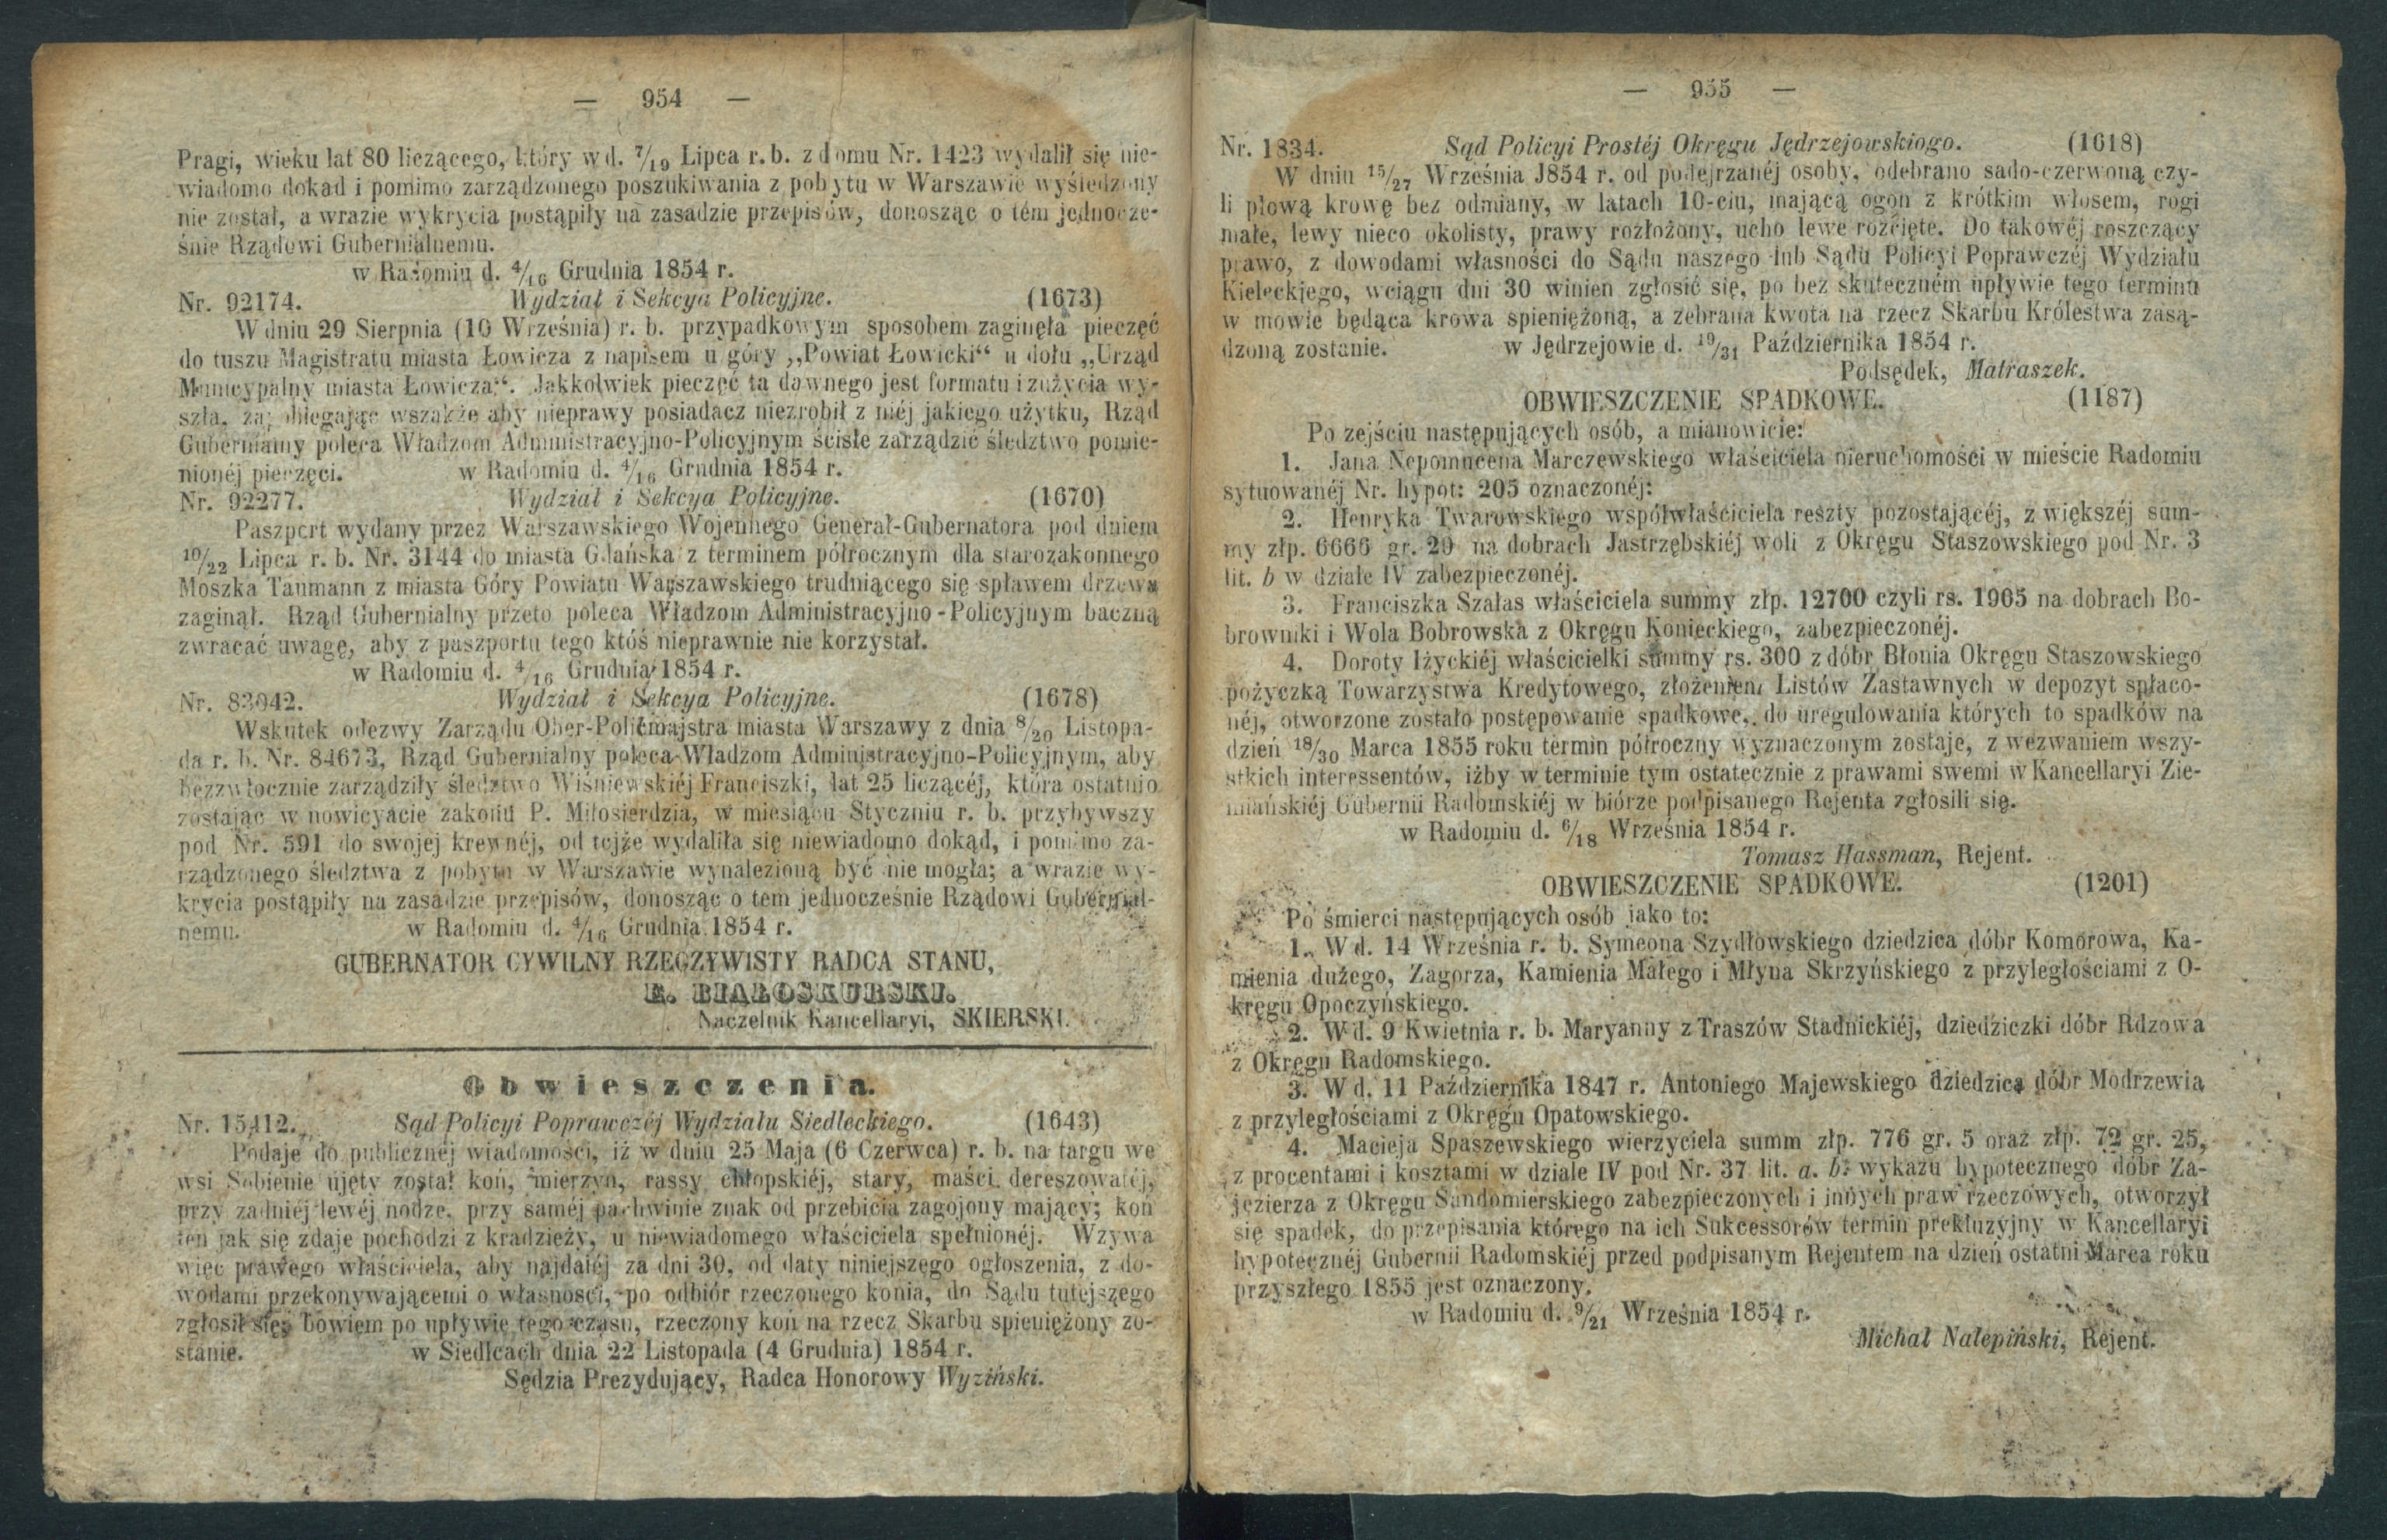 — 954 —
Pragi, wieku lat 80 liczącego, który w d. 7/19 Lipca r. b. z domu Nr. 1423 wydalił się nie-
wiadomo dokąd i pomimo zarządzonego poszukiwania z pobytu w Warszawie wyśledzony
nie został, a wrazie wykrycia postąpiły na zasadzie przepisów, donosząc o tém jednocze-
śnie Rządowi Gubernialnemu.
w Radomiu d. 4/16 Grudnia 1854 r.
Nr. 92174. Wydział i Sekcya Policyjne. (1673)
W dniu 29 Sierpnia (10 Września) r. b. przypadkowym sposobem zaginęła pieczęć
do tuszu Magistratu miasta Łowicza z napisem u góry „Powiat Łowicki“ u dołu „Urząd
Municypalny miasta Łowicza“. Jakkolwiek pieczęć ta dawnego jest formatu i zużycia wy-
szła, zapobiegając wszakże aby nieprawy posiadacz niezrobił z niéj jakiego użytku, Rząd
Gubernialny poleca Władzom Administracyjno-Policyjnym ścisłe zarządzić śledztwo pomie-
nionéj pieczęci. w Radomiu d. 4/16 Grudnia 1854 r.
Nr. 92277. Wydział i Sekcya Policyjne. (1670)
Paszport wydany przez Warszawskiego Wojennego Generał-Gubernatora pod dniem
10/22 Lipca r. b. Nr. 3144 do miasta Gdańska z terminem półrocznym dla starozakonnego
Moszka Taumann z miasta Góry Powiatu Warszawskiego trudniącego się spławem drzewa
zaginął. Rząd Gubernialny przeto poleca Władzom Administracyjno-Policyjnym baczną
zwracać uwagę, aby z paszportu tego ktoś nieprawnie nie korzystał.
w Radomiu d. 4/16 Grudnia 1854 r.
Nr. 83042. Wydział i Sekcya Policyjne. (1678)
Wskutek odezwy Zarządu Ober-Policmajstra miasta Warszawy z dnia 8/20 Listopa-
da r. b. Nr. 84673, Rząd Gubernialny poleca Władzom Administracyjno-Policyjnym, aby
bezzwłocznie zarządziły śledztwo Wiśniewskiéj Franciszki, lat 25 liczącéj, która ostatnio
zostając w nowicyacie zakonu P. Miłosierdzia, w miesiącu Styczniu r. b. przybywszy
pod Nr. 591 do swojej krewnéj, od tejże wydaliła się niewiadomo dokąd, i pomimo za-
rządzonego śledztwa z pobytu w Warszawie wynalezioną być nie mogła; a wrazie wy-
krycia postąpiły na zasadzie przepisów, donosząc o tem jednocześnie Rządowi Gubernial-
nemu. w Radomiu d. 4/16 Grudnia 1854 r.
GUBERNATOR CYWILNY RZECZYWISTY RADCA STANU,
E. BIAŁOSKURSKI.
Naczelnik Kancellaryi, SKIERSKI.
Obwieszczenia.
Nr. 15412. Sąd Policyi Poprawczéj Wydziału Siedleckiego. (1643)
Podaje do publicznéj wiadomości, iż w dniu 25 Maja (6 Czerwca) r. b. na targu we
wsi Sobienie ujęty został koń, mierzyn, rassy chłopskiéj, stary, maści dereszowatéj,
przy zadniéj lewéj nodze, przy saméj pachwinie znak od przebicia zagojony mający; koń
ten jak się zdaje pochodzi z kradzieży, u niewiadomego właściciela spełnionéj. Wzywa
więc prawego właściciela, aby najdaléj za dni 30, od daty niniejszego ogłoszenia, z do-
wodami przekonywającemi o własności, po odbiór rzeczonego konia, do Sądu tutejszego
zgłosił się; bowiem po upływie tego czasu, rzeczony koń na rzecz Skarbu spieniężony zo-
stanie. w Siedlcach dnia 22 Listopada (4 Grudnia) 1854 r.
Sędzia Prezydujący, Radca Honorowy Wyziński.
— 955 —
Nr. 1834. Sąd Policyi Prostéj Okręgu Jędrzejowskiogo. (1618)
W dniu 15/27 Września J854 r. od podejrzanéj osoby, odebrano sado-czerwoną czy-
li płową krowę bez odmiany, w latach 10-ciu, mającą ogon z krótkim włosem, rogi
małe, lewy nieco okolisty, prawy rozłożony, ucho lewe rozcięte. Do takowéj roszczący
prawo, z dowodami własności do Sądu naszego lub Sądu Policyi Poprawczéj Wydziału
Kieleckiego, wciągu dni 30 winien zgłosić się, po bez skuteczném upływie tego terminu
w mowie będąca krowa spieniężoną, a zebrana kwota na rzecz Skarbu Królestwa zasą-
dzoną zostanie. w Jędrzejowie d. 19/31 Października 1854 r.
Podsędek, Matraszek.
OBWIESZCZENIE SPADKOWE. (1187)
Po zejściu następujących osób, a mianowicie:
1. Jana Nepomucena Marczewskiego właściciela nieruchomości w mieście Radomiu
sytuowanéj Nr. hypot: 205 oznaczonéj:
2. Henryka Twarowskiego współwłaściciela reszty pozostającéj, z większéj sum-
my złp. 6666 gr. 20 na dobrach Jastrzębskiéj woli z Okręgu Staszowskiego pod Nr. 3
lit. b w dziale IV zabezpieczonéj.
3. Franciszka Szałas właściciela summy złp. 12700 czyli rs. 1905 na dobrach Bo-
browniki i Wola Bobrowska z Okręgu Konieckiego, zabezpieczonéj.
4. Doroty Iżyckiéj właścicielki summy rs. 300 z dóbr Błonia Okręgu Staszowskiego
pożyczką Towarzystwa Kredytowego, złożeniem Listów Zastawnych w depozyt spłaco-
néj, otworzone zostało postępowanie spadkowe, do uregulowania których to spadków na
dzień 18/30 Marca 1855 roku termin półroczny wyznaczonym zostaje, z wezwaniem wszy-
stkich interessentów, iżby w terminie tym ostatecznie z prawami swemi w Kancellaryi Zie-
miańskiéj Gubernii Radomskiéj w biórze podpisanego Rejenta zgłosili się.
w Radomiu d. 6/18 Września 1854 r.
Tomasz Hassman, Rejent.
OBWIESZCZENIE SPADKOWE. (1201)
Po śmierci następujących osób jako to:
1. W d. 14 Września r. b. Symeona Szydłowskiego dziedzica dóbr Komorowa, Ka-
mienia dużego, Zagorza, Kamienia Małego i Młyna Skrzyńskiego z przyległościami z O-
kręgu Opoczyńskiego.
2. W d. 9 Kwietnia r. b. Maryanny z Traszów Stadnickiéj, dziedziczki dóbr Rdzowa
z Okręgu Radomskiego.
3. W d. 11 Października 1847 r. Antoniego Majewskiego dziedzica dóbr Modrzewia
z przyległościami z Okręgu Opatowskiego.
4. Macieja Spaszewskiego wierzyciela summ złp. 776 gr. 5 oraz złp. 72 gr. 25,
z procentami i kosztami w dziale IV pod Nr. 37 lit. a. b. wykazu hypotecznego dóbr Za-
jezierza z Okręgu Sandomierskiego zabezpieczonych i innych praw rzeczowych, otworzył
się spadek, do przepisania którego na ich Sukcessorów termin prekluzyjny w Kancellaryi
hypotecznéj Gubernii Radomskiéj przed podpisanym Rejentem na dzień ostatni Marca roku
przyszłego 1855 jest oznaczony.
w Radomiu d. 9/21 Września 1854 r.
Michał Nalepiński, Rejent.